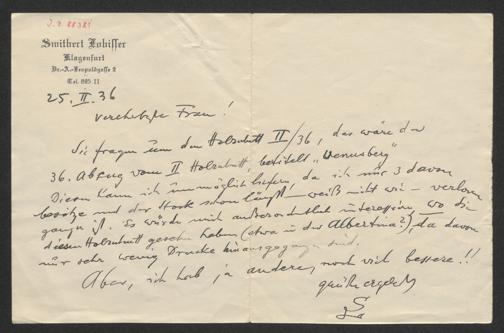 Switbert Lobisser
Klagenfurt
Dr.-A.-Leopoldgasse 2
25. II. 36
verehrteste Frau!
Sie fragen um den Holzschnitt II/36, das wäre der
36. Abzug vom II Holzschnitt, betitelt „Venusberg"
Diesen kann ich unmöglich liefern, da ich nur 3 davon
besitze und der Stock schon längst – weiß nicht wie – verloren
gegangen ist. Es würde mich außerordentlich interessieren, wo Sie
diesen Holzschnitt gesehen haben (etwa in der Albertina?) da davon
nur sehr wenig Drucke hinausgegangen sind.
Aber, ich hab ja andere, noch viel bessere!!
grüßt ergebenst